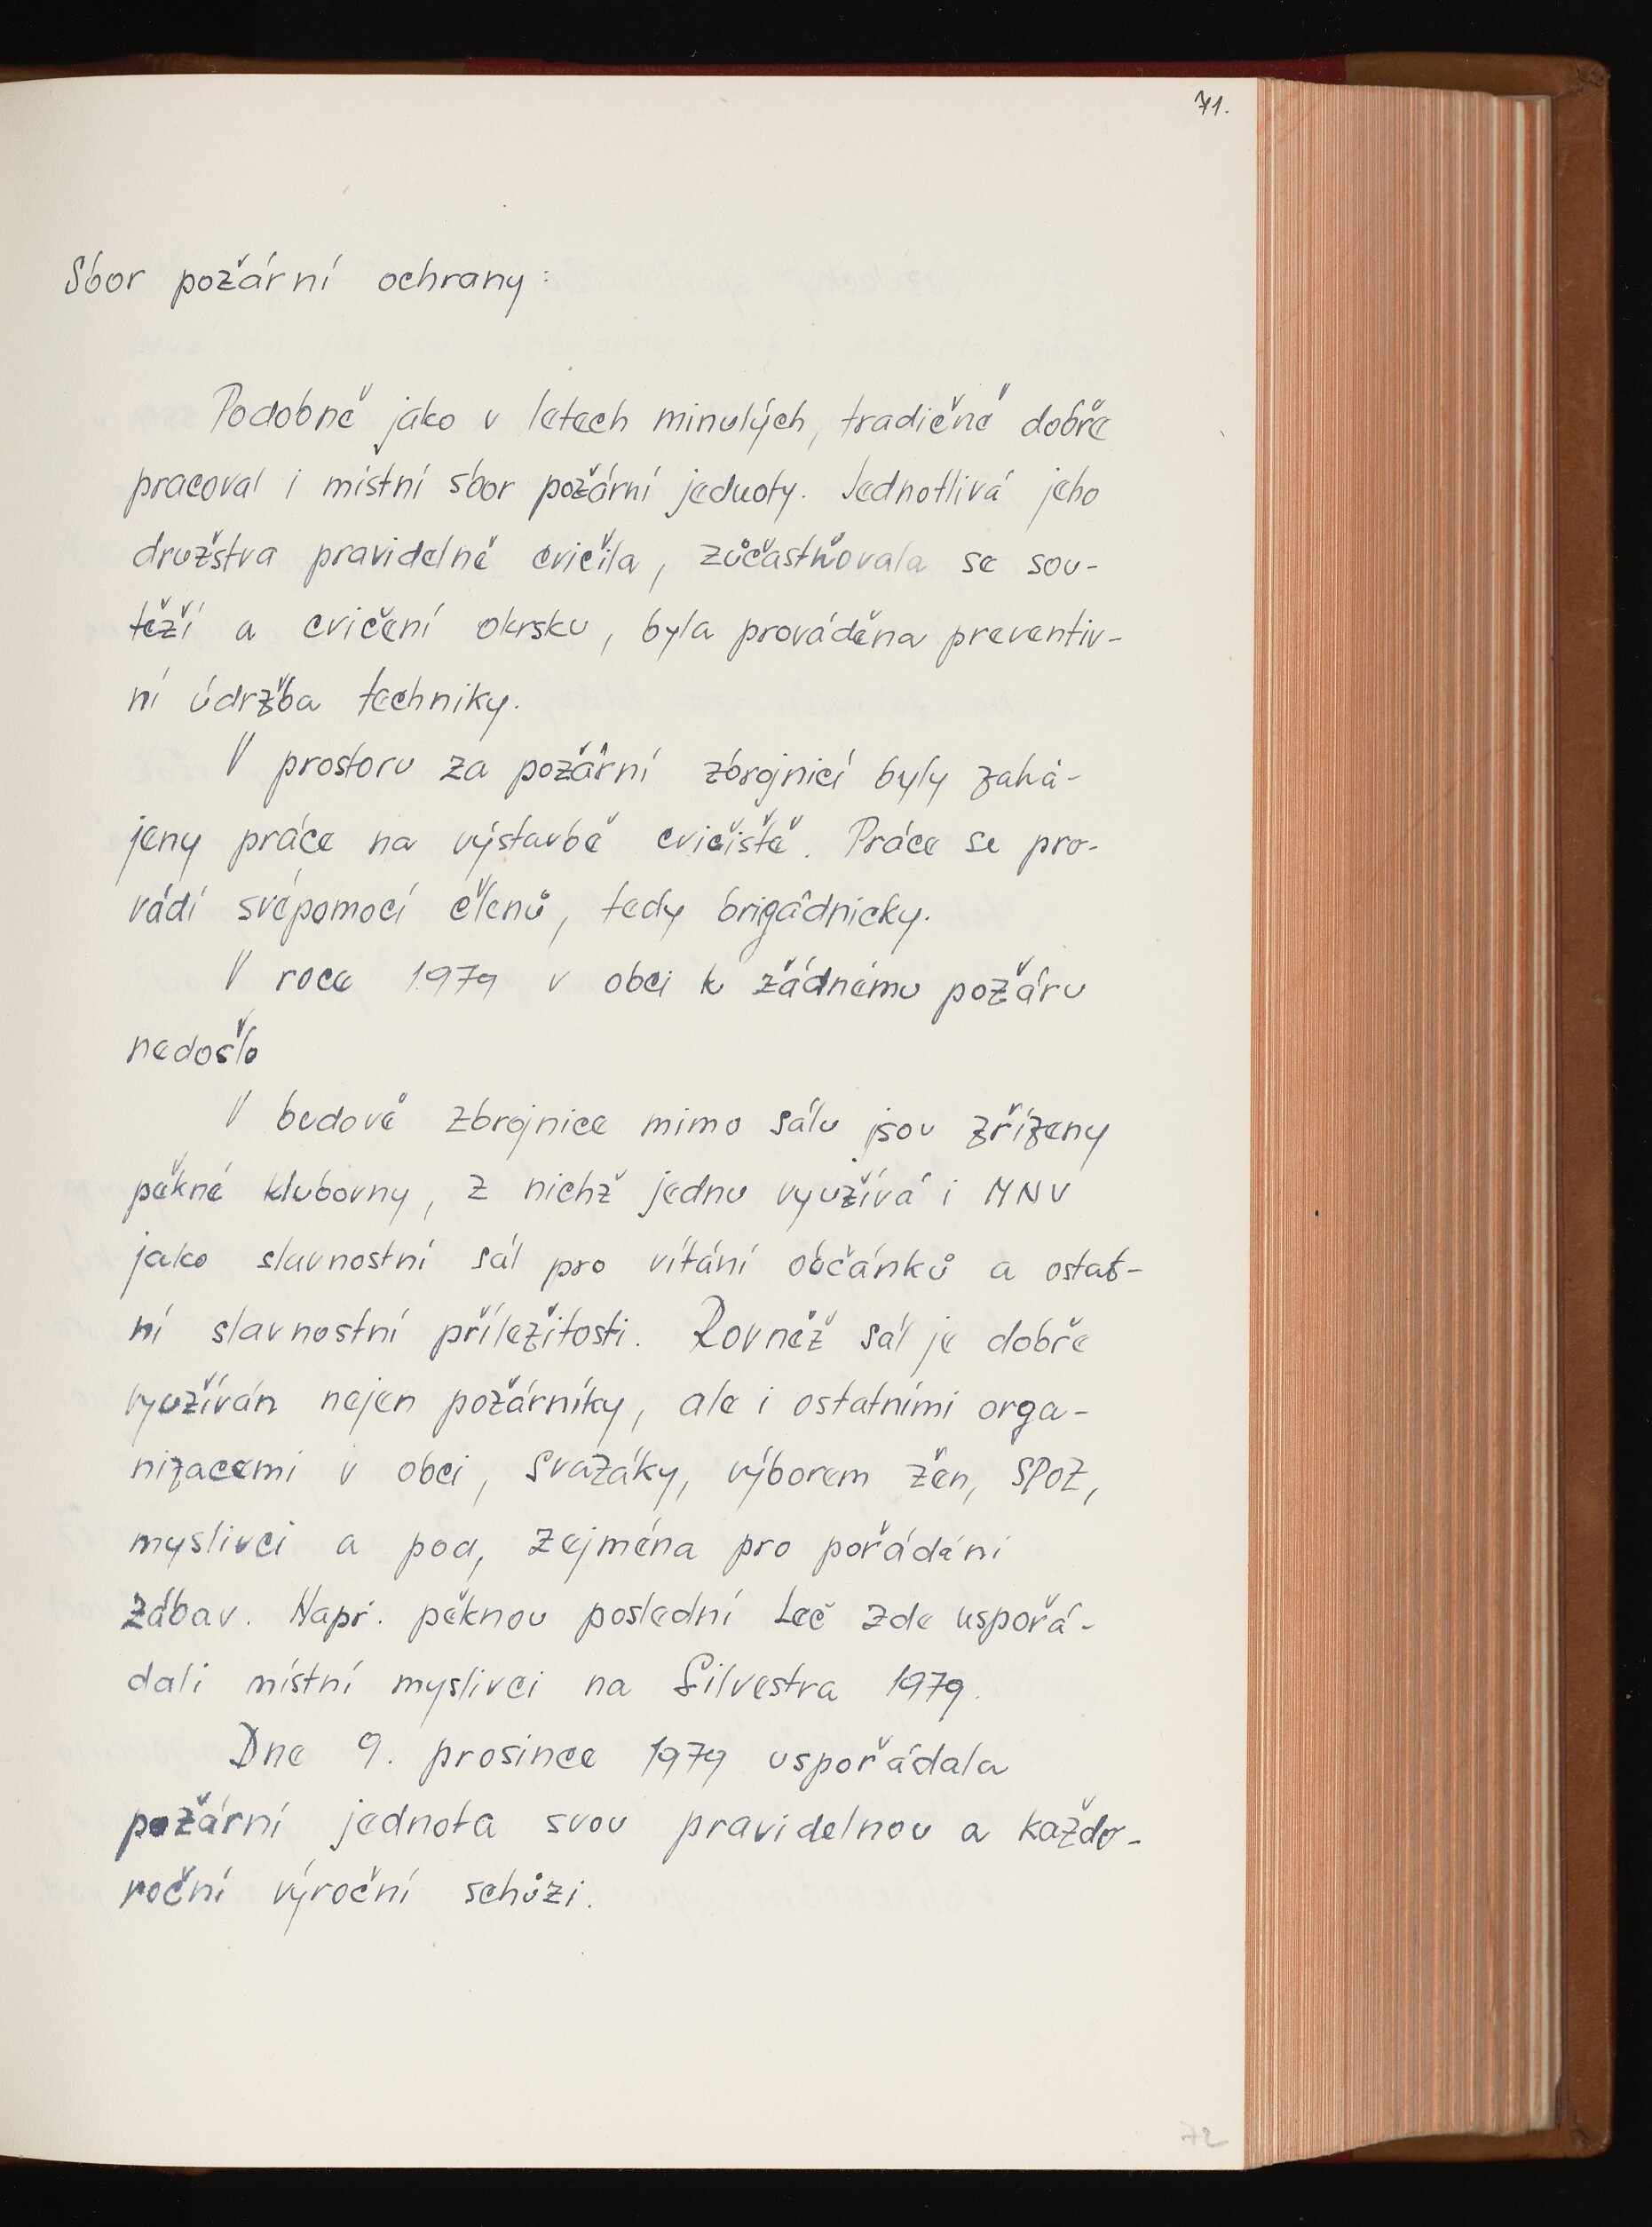 71.
Sbor požární ochrany:
Podobně jako v letech minulých, tradičně dobře
pracoval i místní sbor požární jednoty. Jednotlivá jeho
družstva pravidelně cvičila, zúčastňovala se sou-
těží a cvičení okrsku, byla prováděna preventiv-
ní údržba techniky.
V prostoru za požární zbrojnicí byly zahá-
jeny práce na výstavbě cvičiště. Práce se pro-
vádí svépomocí členů, tedy brigádnicky.
V roce 1979 v obci k žádnému požáru
nedošlo
V budově zbrojnice mimo sálu jsou zřízeny
pěkné klubovny, z nichž jednu využívá i MNV
jako slavnostní sál pro vítání občánků a ostat-
ní slavnostní příležitosti. Rovněž sál je dobře
využíván nejen požárníky, ale i ostatními orga-
nizacemi v obci, Svazáky, výborem žen, SPOZ,
myslivci a pod, zejména pro pořádání
zábav. Např. pěknou poslední Leč zde uspořá-
dali místní myslivci na Silvestra 1979.
Dne 9. prosince 1979 uspořádala
požární jednota svou pravidelnou a každo-
roční výroční schůzi.
72